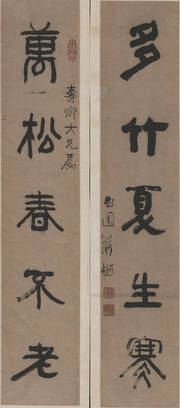 多竹夏生寒
園翁
萬松春不老
壽卿大兄屬